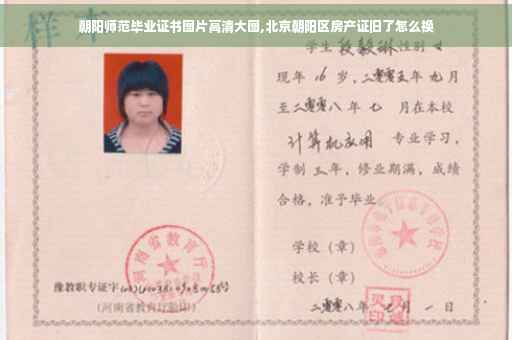 朝阳师范毕业证书图片高清大图,北京朝阳区房产证旧了怎么换
样本
学生段毅琳性别女
现年16岁,二零零五年九月
至二零零八年七月在本校
计算机应用 专业学习,
学制三年,修业期满,成绩
合格,准予毕业
学校(章)
校长(章)
河南省教育厅
豫教职专证字
(河南省教育厅验印)
二零零八年 月一日